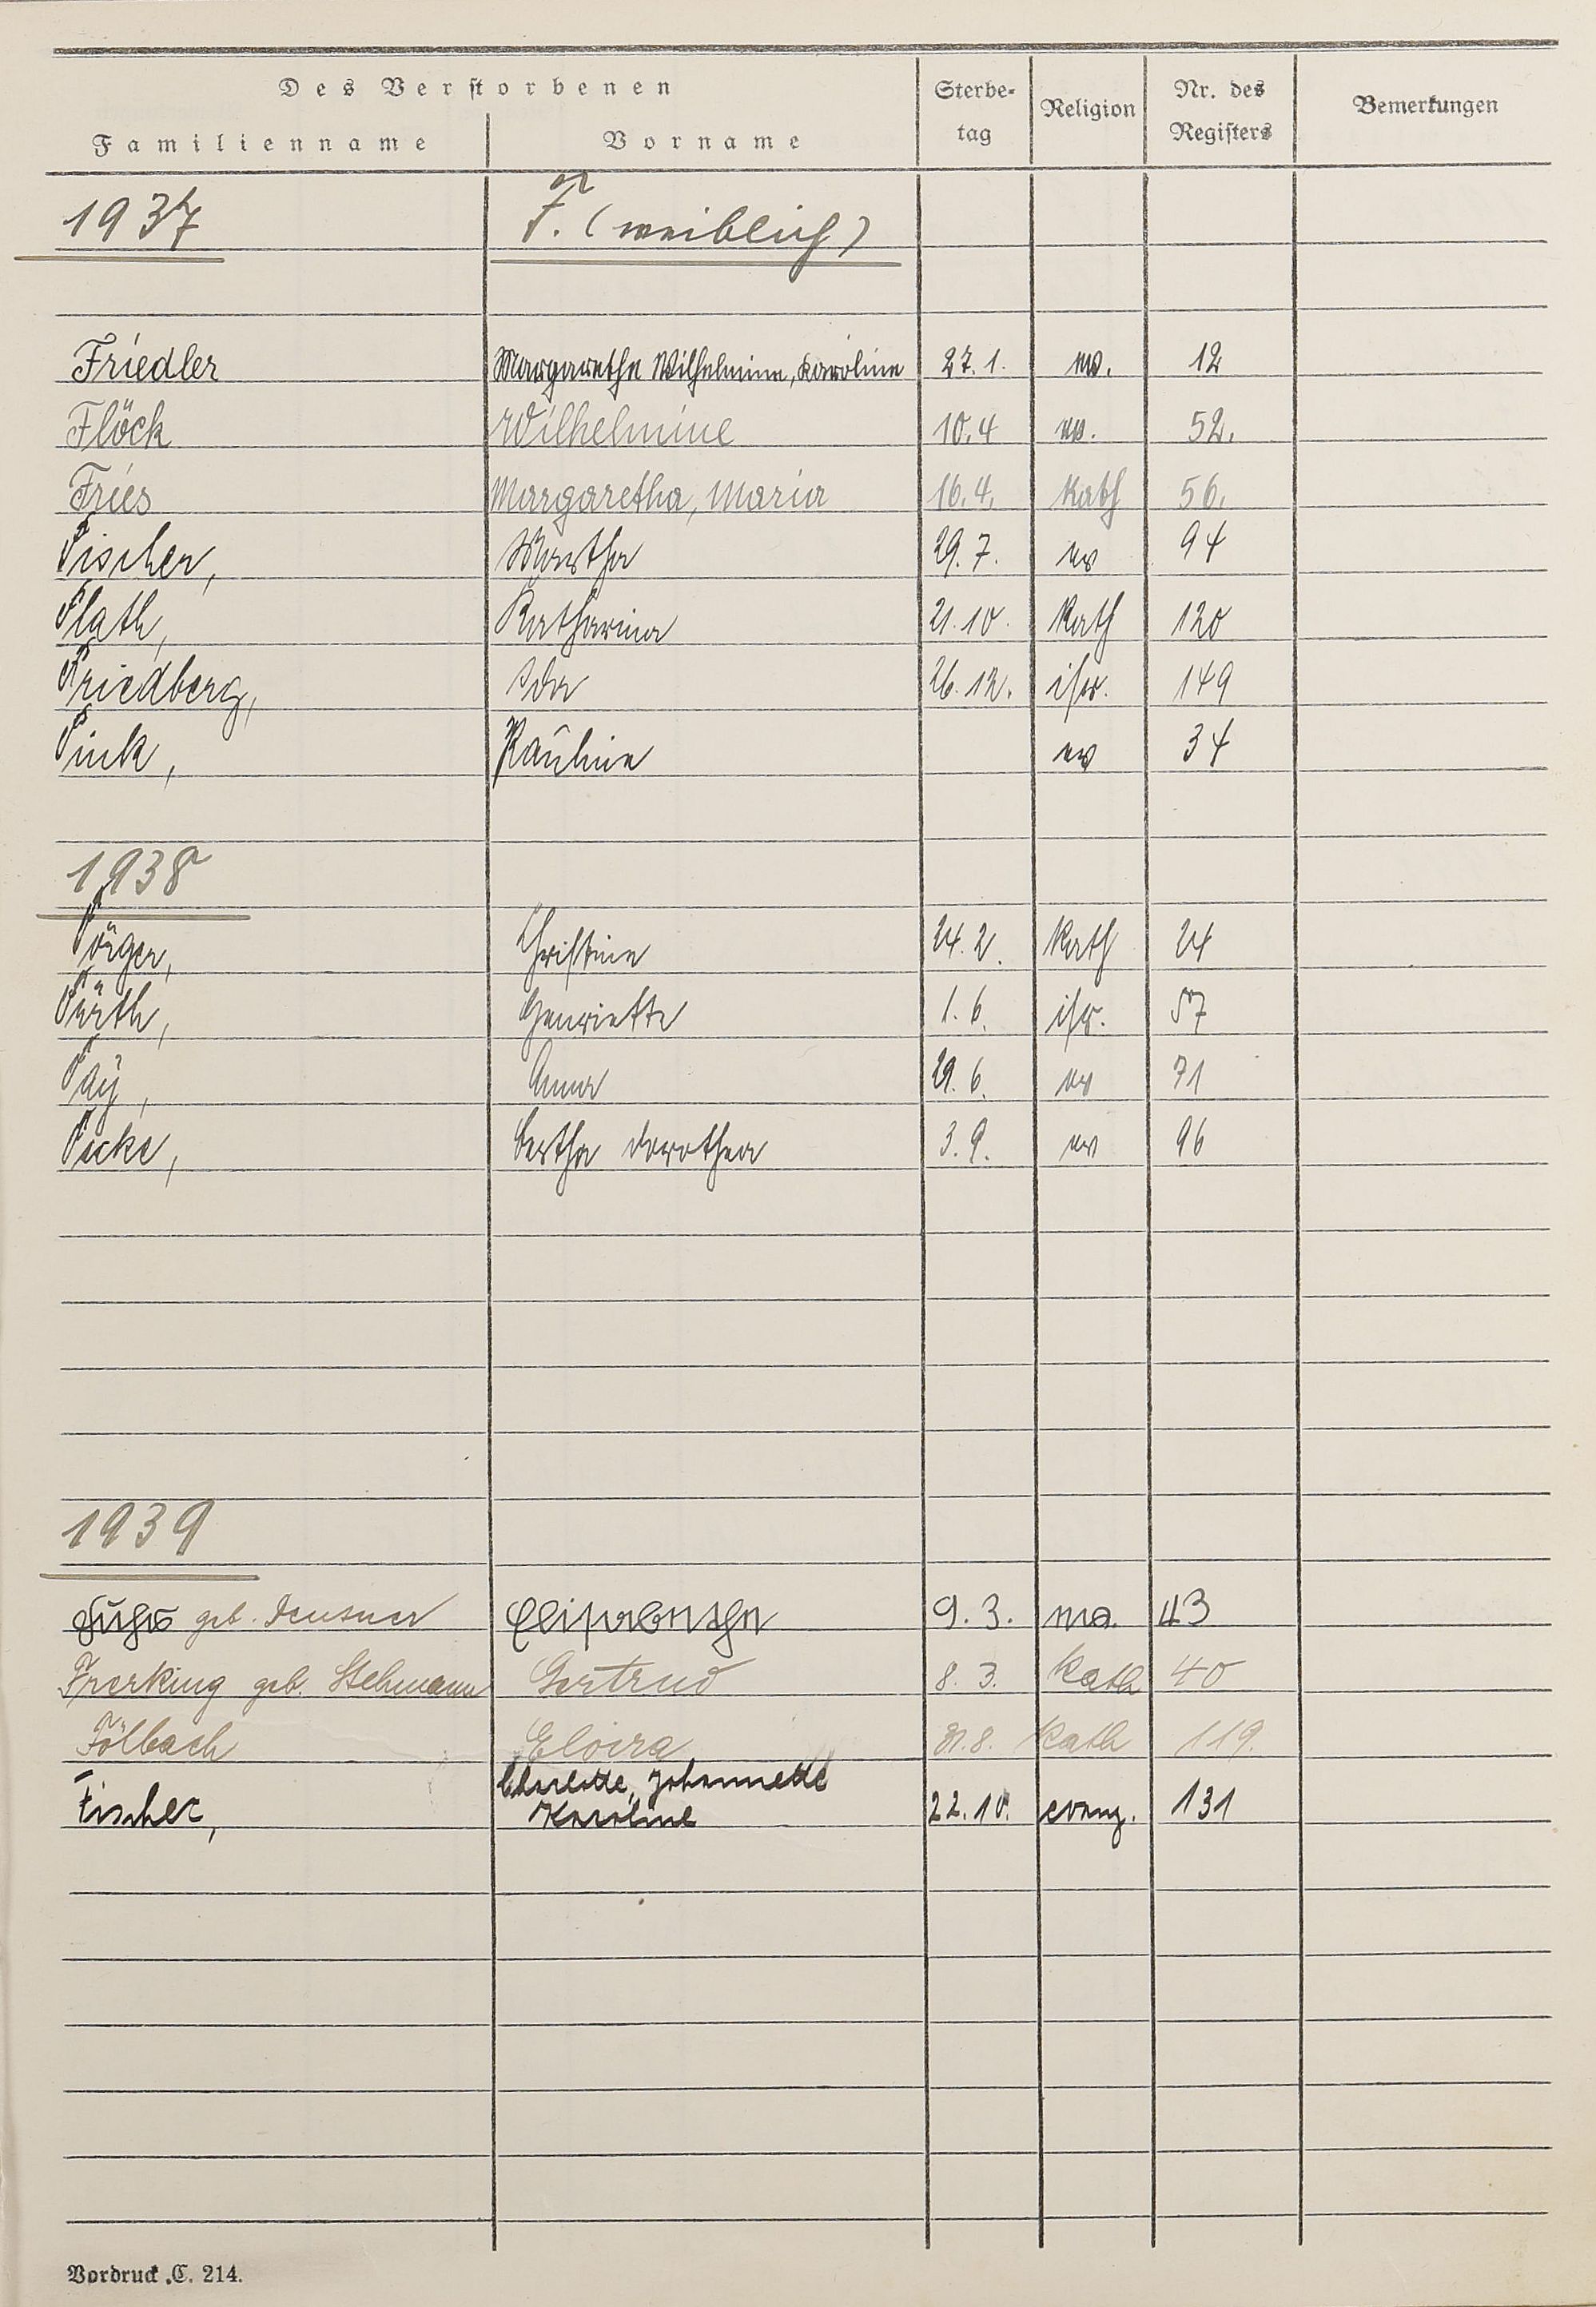 Des Verstorbenen
Familienname Vorname Sterbe-tag Religion Nr. des Registers Bemerkungen
1937 F. (weiblich)
Friedler Margarethe Wilhelmine, Karoline 27.1. ev. 12
Flöck Wilhelmine 10.4 ev. 52.
Fries Margaretha, Maria 16.4. Kath 56.
Fischer, Martha 29.7. ev 94
Flath, Katharina 21.10. Kath 120
Friedberg, Ida 26.12. isr. 149
Fink, Pauline ev 34
1938
Christine 24.2. Kath 24
Fürth, Henriette 1.6. isr. 57
Faÿ, Anna 29.6. ev 71
Bertha Dorothea 3.9. ev 96
1939
Fuhr geb. Elisabethe 9.3. ev. 43
Frerking geb. Stehmann Gertrud 8.3. Kath 40
Fölbach Kath 119.
Fischer, Charlotte, Johannette
Karoline 22.10. evang. 131
Vordruck C. 214.